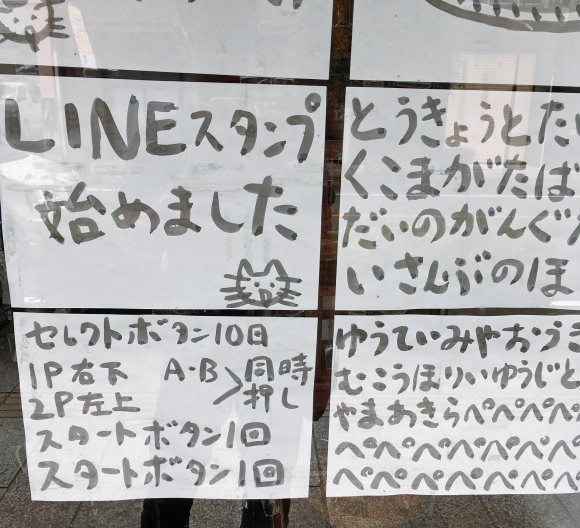 LINEスタンプ
始めました
とうきょうとた
くこまがたば
だいのがんぐ
いさんぶのほ
セレクトボタン10回
1P右下 A・B>同時
2P左上 押し
スタートボタン1回
スタートボタン1回
ゆうていみやおうき
むこうほりいゆうじと
やまあきらぺぺぺぺ
ぺぺぺぺぺぺぺ
ぺぺぺぺぺぺぺ